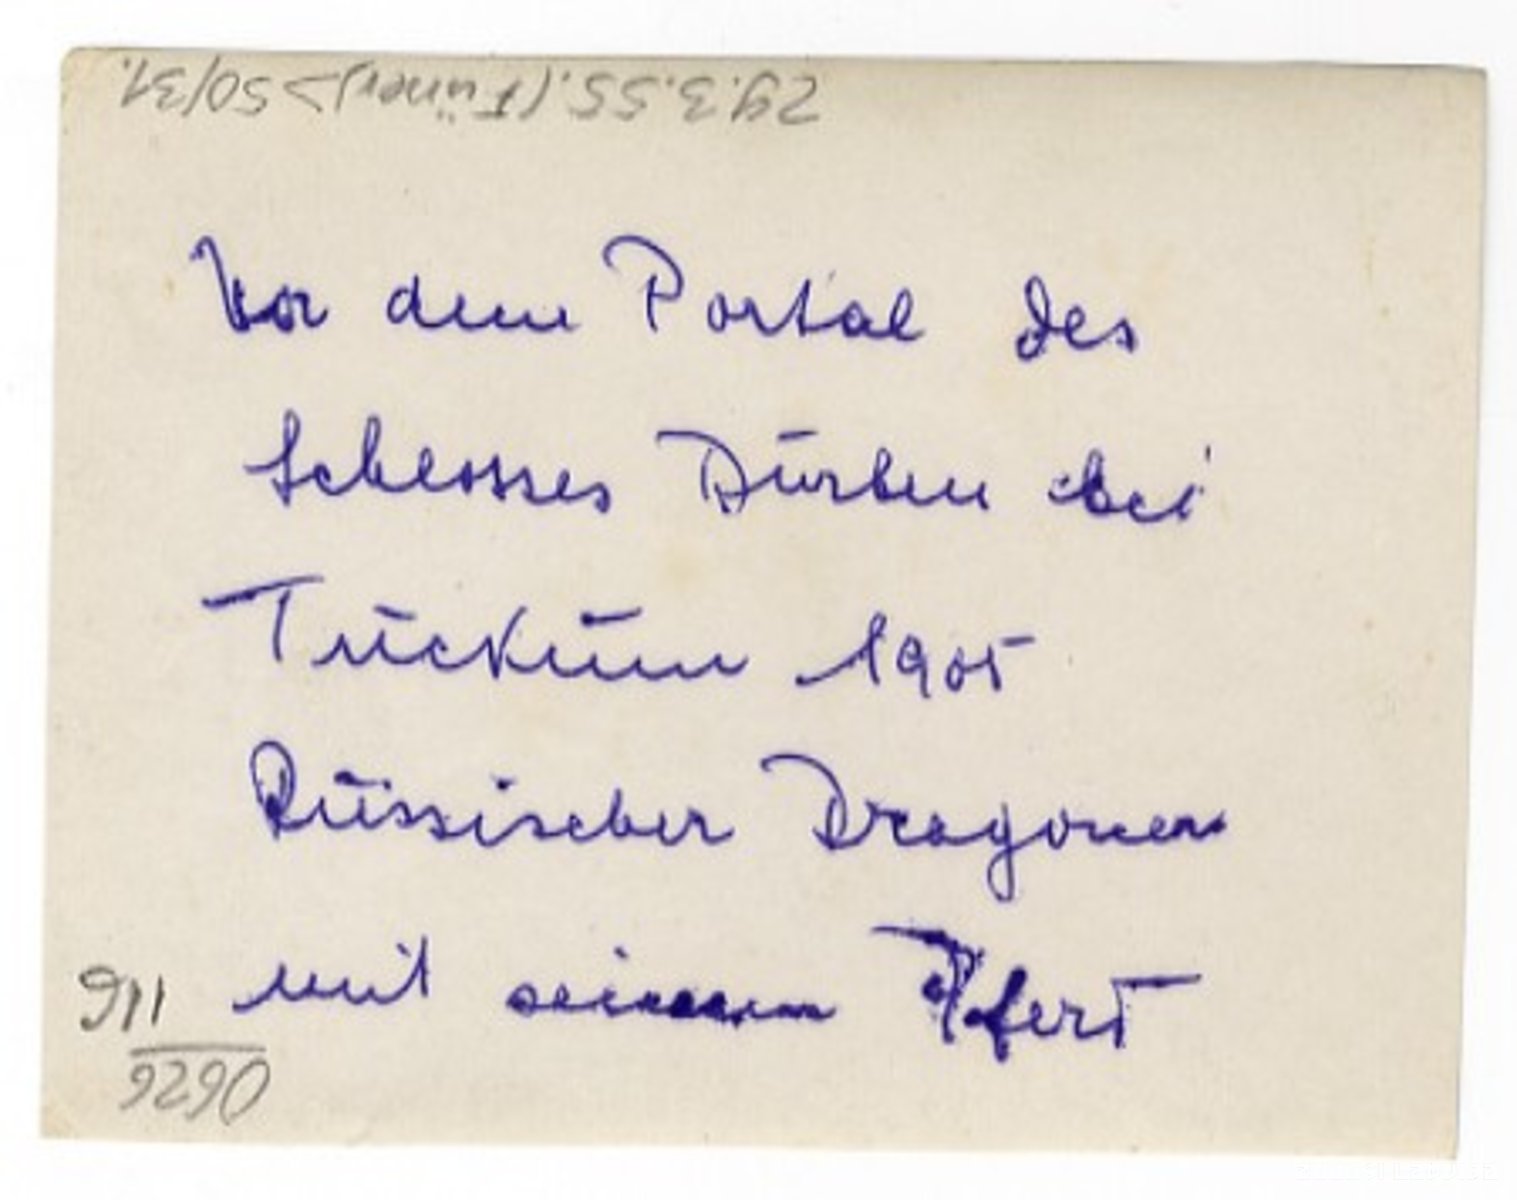 29.3.55. 50/31.
Vor dem Portal des
Schlosses Durben bei
Tuckum 1905
Russischer Dragoner
mit seinem Pferd
0626
116